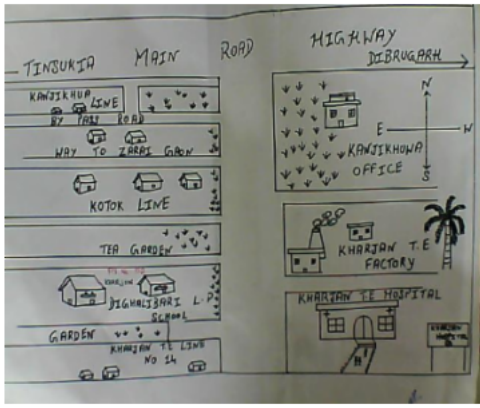 HIGHWAY
TINSUKIA MAIN ROAD
DIBRUGARH
KANJIKHUA
LINE
BY PASS ROAD
WAY TO ZARAI GAON
KOTOK LINE
TEA GARDEN
DIGHALIBARI L.P
SCHOOL
GARDEN
KHARJAN T.E LINE
NO 14
N
E W
S
KANJIKHOWA
OFFICE
KHARJAN T.E
FACTORY
KHARJAN T.E HOSPITAL
KHARJAN
HOSPITAL
H